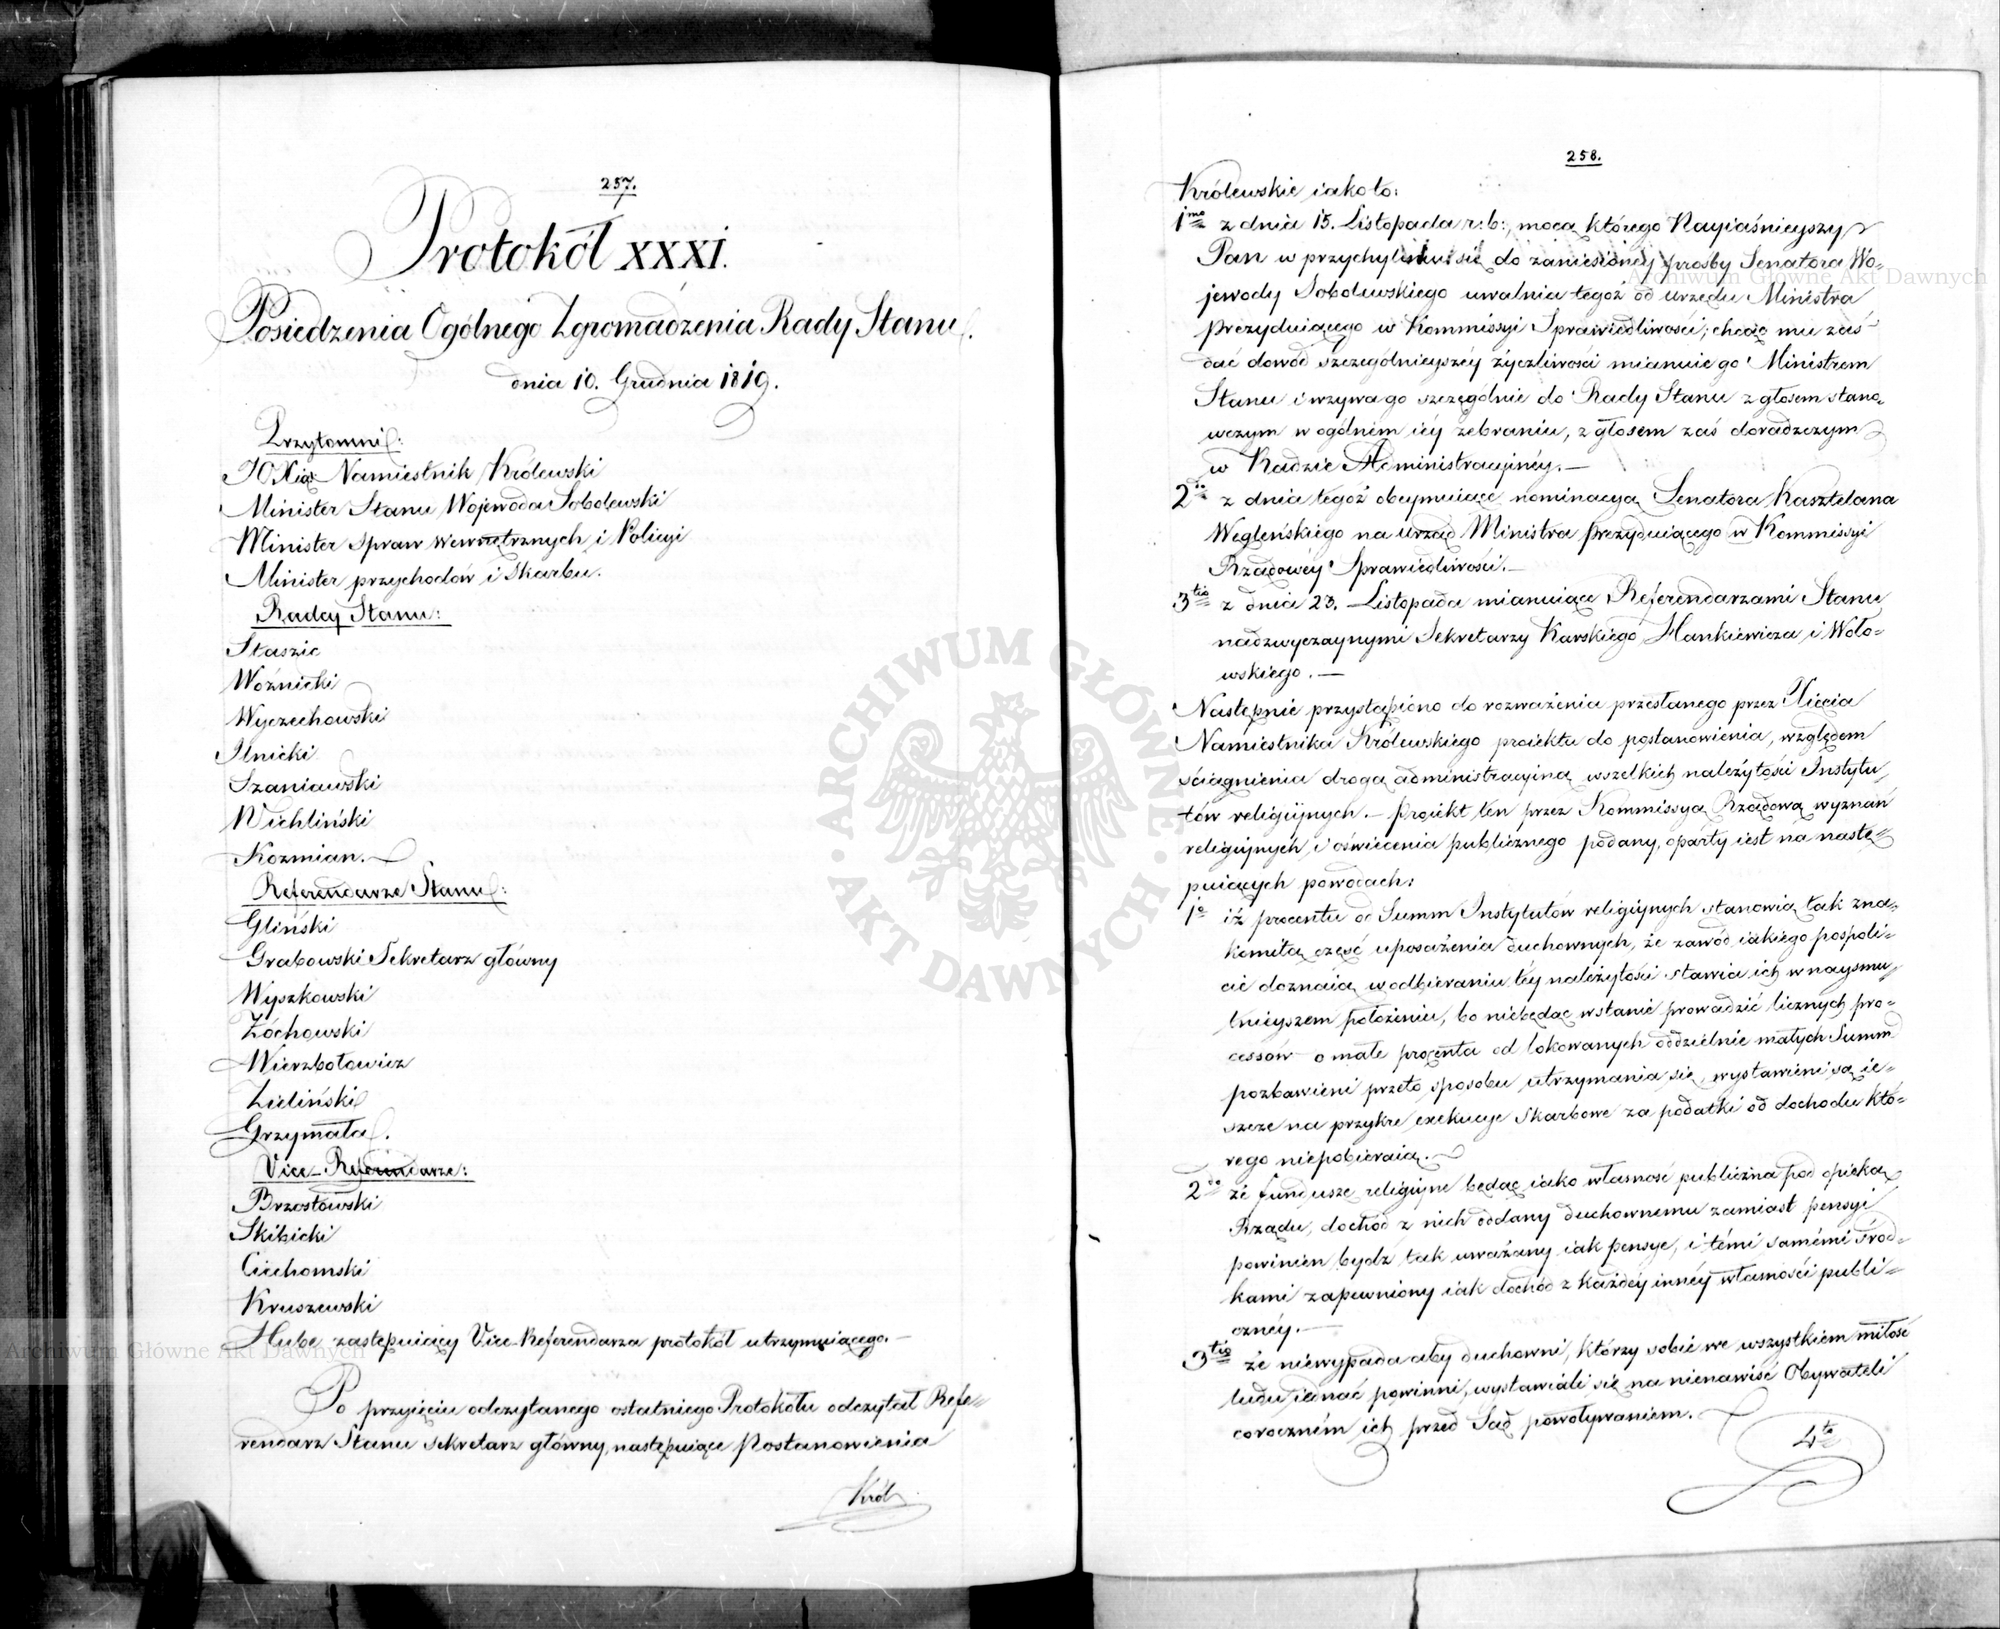 257.
Protokół XXXI.
Posiedzenia Ogólnego Zgromadzenia Rady Stanu.
dnia 10. Grudnia 1819.
Przytomni:
JOXiąż Namiestnik Królewski
Minister Stanu Wojewoda Sobolewski
Minister Spraw Wewnętrznych i Policyi
Minister przychodów i Skarbu.
Radcy Stanu:
Staszic
Woźnicki
Wyczechowski
Ilnicki
Szaniawski
Wichliński
Kozmian.
Referendarze Stanu:
Gliński
Grabowski Sekretarz główny
Wyszkowski
Żóchowski
Wierzbołowicz
Zieliński
Grzymała.
Vice-Referendarze:
Brzostowski
Skibicki
Ciechomski
Kruszewski
Hube zastępuiący Vice-Referendarza protokół utrzymuiącego.—
Po przyięciu odczytanego ostatniego Protokółu odczytał Refe=
rendarz Stanu Sekretarz główny, następuiące Postanowienia
Król
258.
Królewskie iakoto:
1mo z dnia 15. Listopada r: b:, mocą którego Nayiaśnieyszy
Pan w przychyleniu się do zaniesionéy prośby Senatora Wo=
jewody Sobolewskiego uwalnia tegoż od urzędu Ministra
Prezyduiącego w Kommissyi Sprawiedliwości; chcąc mu zaś
dać dowód szczególnieyszéy życzliwości mianuie go Ministrem
Stanu i wzywa go szczególnie do Rady Stanu z głosem stano=
wczym w ogólném iéy zebraniu, z głosem zaś doradzczym
w Radzie Administracyinéy.—
2do z dnia tegoż obeymuiące nominacyą Senatora Kasztelana
Węgleńskiego na urząd Ministra Prezyduiącego w Kommissyi
Rządowéy Sprawiedliwości.—
3tio z dnia 23. Listopada mianuiące Referendarzami Stanu
nadzwyczaynymi Sekretarzy Karskiego, Hankiewicza i Woło=
wskiego.—
Następnie przystąpiono do rozważenia przesłanego przez Xięcia
Namiestnika Królewskiego proiektu do postanowienia, względem
ściągnienia drogą administracyiną wszelkich należytości Instytu
tów religiynych.— Projekt ten przez Kommissyą Rządową wyznań
religiynych i oświecenia publicznego podany, oparty iest na nastę=
puiących powodach:
1o iż procentu od Summ Instytutów religiynych stanowią tak zna=
komitą część uposażenia duchownych, że zawód iakiego pospoli=
cie doznaią w odbieraniu téy należytości stawia ich w naysmu
tnieyszem położeniu, bo niebędąc w stanie prowadzić licznych pro=
cessów o małe procenta od lokowanych oddzielnie małych Summ
pozbawieni przeto sposobu utrzymania się, wystawieni są ie=
szcze na przykre exekucye Skarbowe za podatki od dochodu któ=
rego niepobieraią.
2do że fundusze religiyne będąc iako własność publiczna pod opieką
Rządu, dochód z nich oddany duchownemu zamiast pensyi
powinien bydź tak uważany iak pensye, i témi samémi środ=
kami zapewniony iak dochód z każdéy innéy własności publi=
cznéy.—
3tio że niewypada aby duchowni, którzy sobie we wszystkiem miłość
ludu iednać powinni, wystawiali się na nienawiść Obywateli
coroczném ich przed Sąd powoływaniem.
4to
ARCHIWUM GŁÓWNE AKT DAWNYCH
Archiwum Główne Akt Dawnych
Archiwum Główne Akt Dawnych